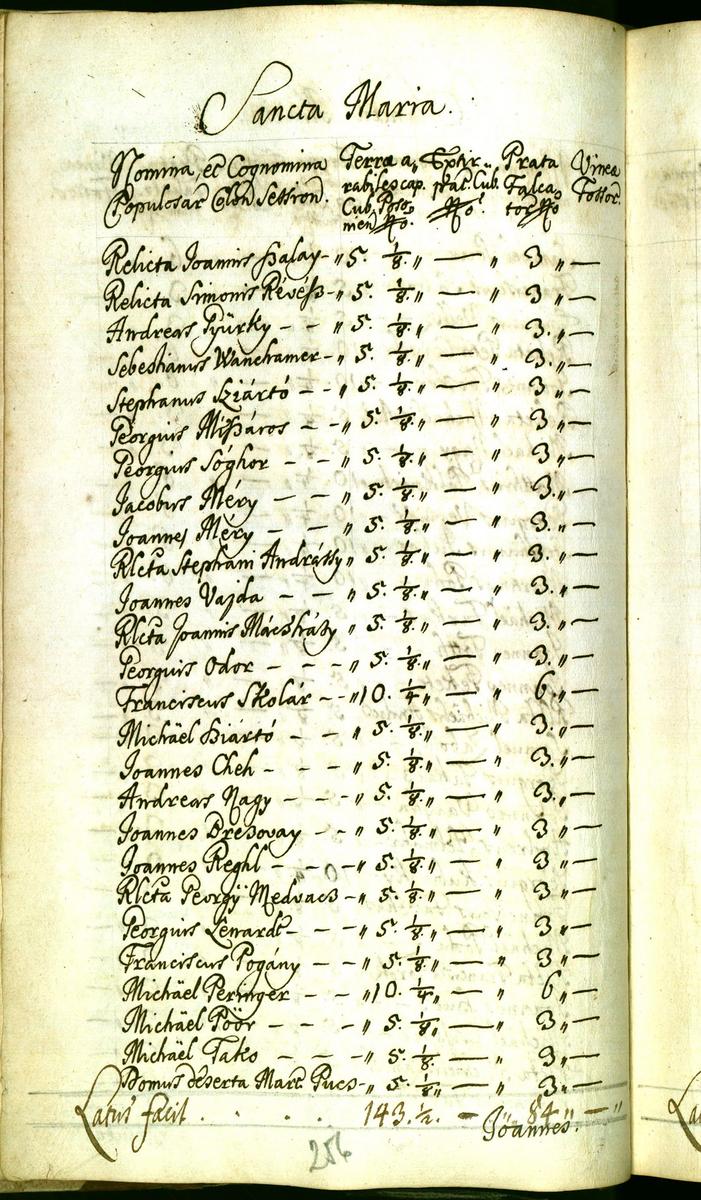 Sancta Maria.
Nomina, et Cognomina Terra a, Extir Prata Vinea
Populosar Colon Session. rabiles cap. pat. Cub. Falca Fossor.
Cub. Poso No tor No
nien No.
Relicta Joannis Halay - " 5. 1/8. " — " 3 " —
Relicta Simonis Révéß - " 5. 1/8. " — " 3 " —
Andreas Gyürky - - " 5. 1/8. " — " 3. " —
Sebestianus Wanchamer - " 5. 1/8. " — " 3. " —
Stephanus Sziártó - - " 5. 1/8. " — " 3 " —
Georgius Mißáros - - " 5. 1/8. " — " 3 " —
Georgius Sóghor - - " 5. 1/8. " — " 3 " —
Jacobus Méry - - " 5. 1/8. " — " 3. " —
Joannes Méry - - " 5. 1/8. " — " 3. " —
Rlcta Stephani Andrássy " 5. 1/8. " — " 3. " —
Joannes Vajda - - " 5. 1/8. " — " 3. " —
Rlcta Joannis Mácsházy " 5. 1/8. " — " 3. " —
Georguis Odor - - - " 5. 1/8. " — " 3. " —
Franciscus Skolár - - " 10. 1/4. " — " 6. " —
Michäel Hiártó - - " 5. 1/8. " — " 3. " —
Joannes Cheh - - - " 5. 1/8. " — " 3. " —
Andreas Nagy - - - " 5. 1/8. " — " 3. " —
Joannes Bresovay - - " 5. 1/8. " — " 3 " —
Joannes Reghl - - - " 5. 1/8. " — " 3 " —
Rlcta Georgÿ Medvacs - " 5. 1/8. " — " 3 " —
Georguis Lenardt - - - " 5. 1/8. " — " 3 " —
Franciscus Pogány - - " 5. 1/8. " — " 3 " —
Michäel Peringer - - " 10. 1/4. " — " 6 " —
Michäel Póór - - - " 5. 1/8. " — " 3 " —
Michäel Taks - - - " 5. 1/8. — " 3 " —
Domus deserta Mart Pucs - " 5. 1/8. " — " 3 " —
Latus facit . . . . 143. 1/2. - " 84 " — "
Joannes.
256